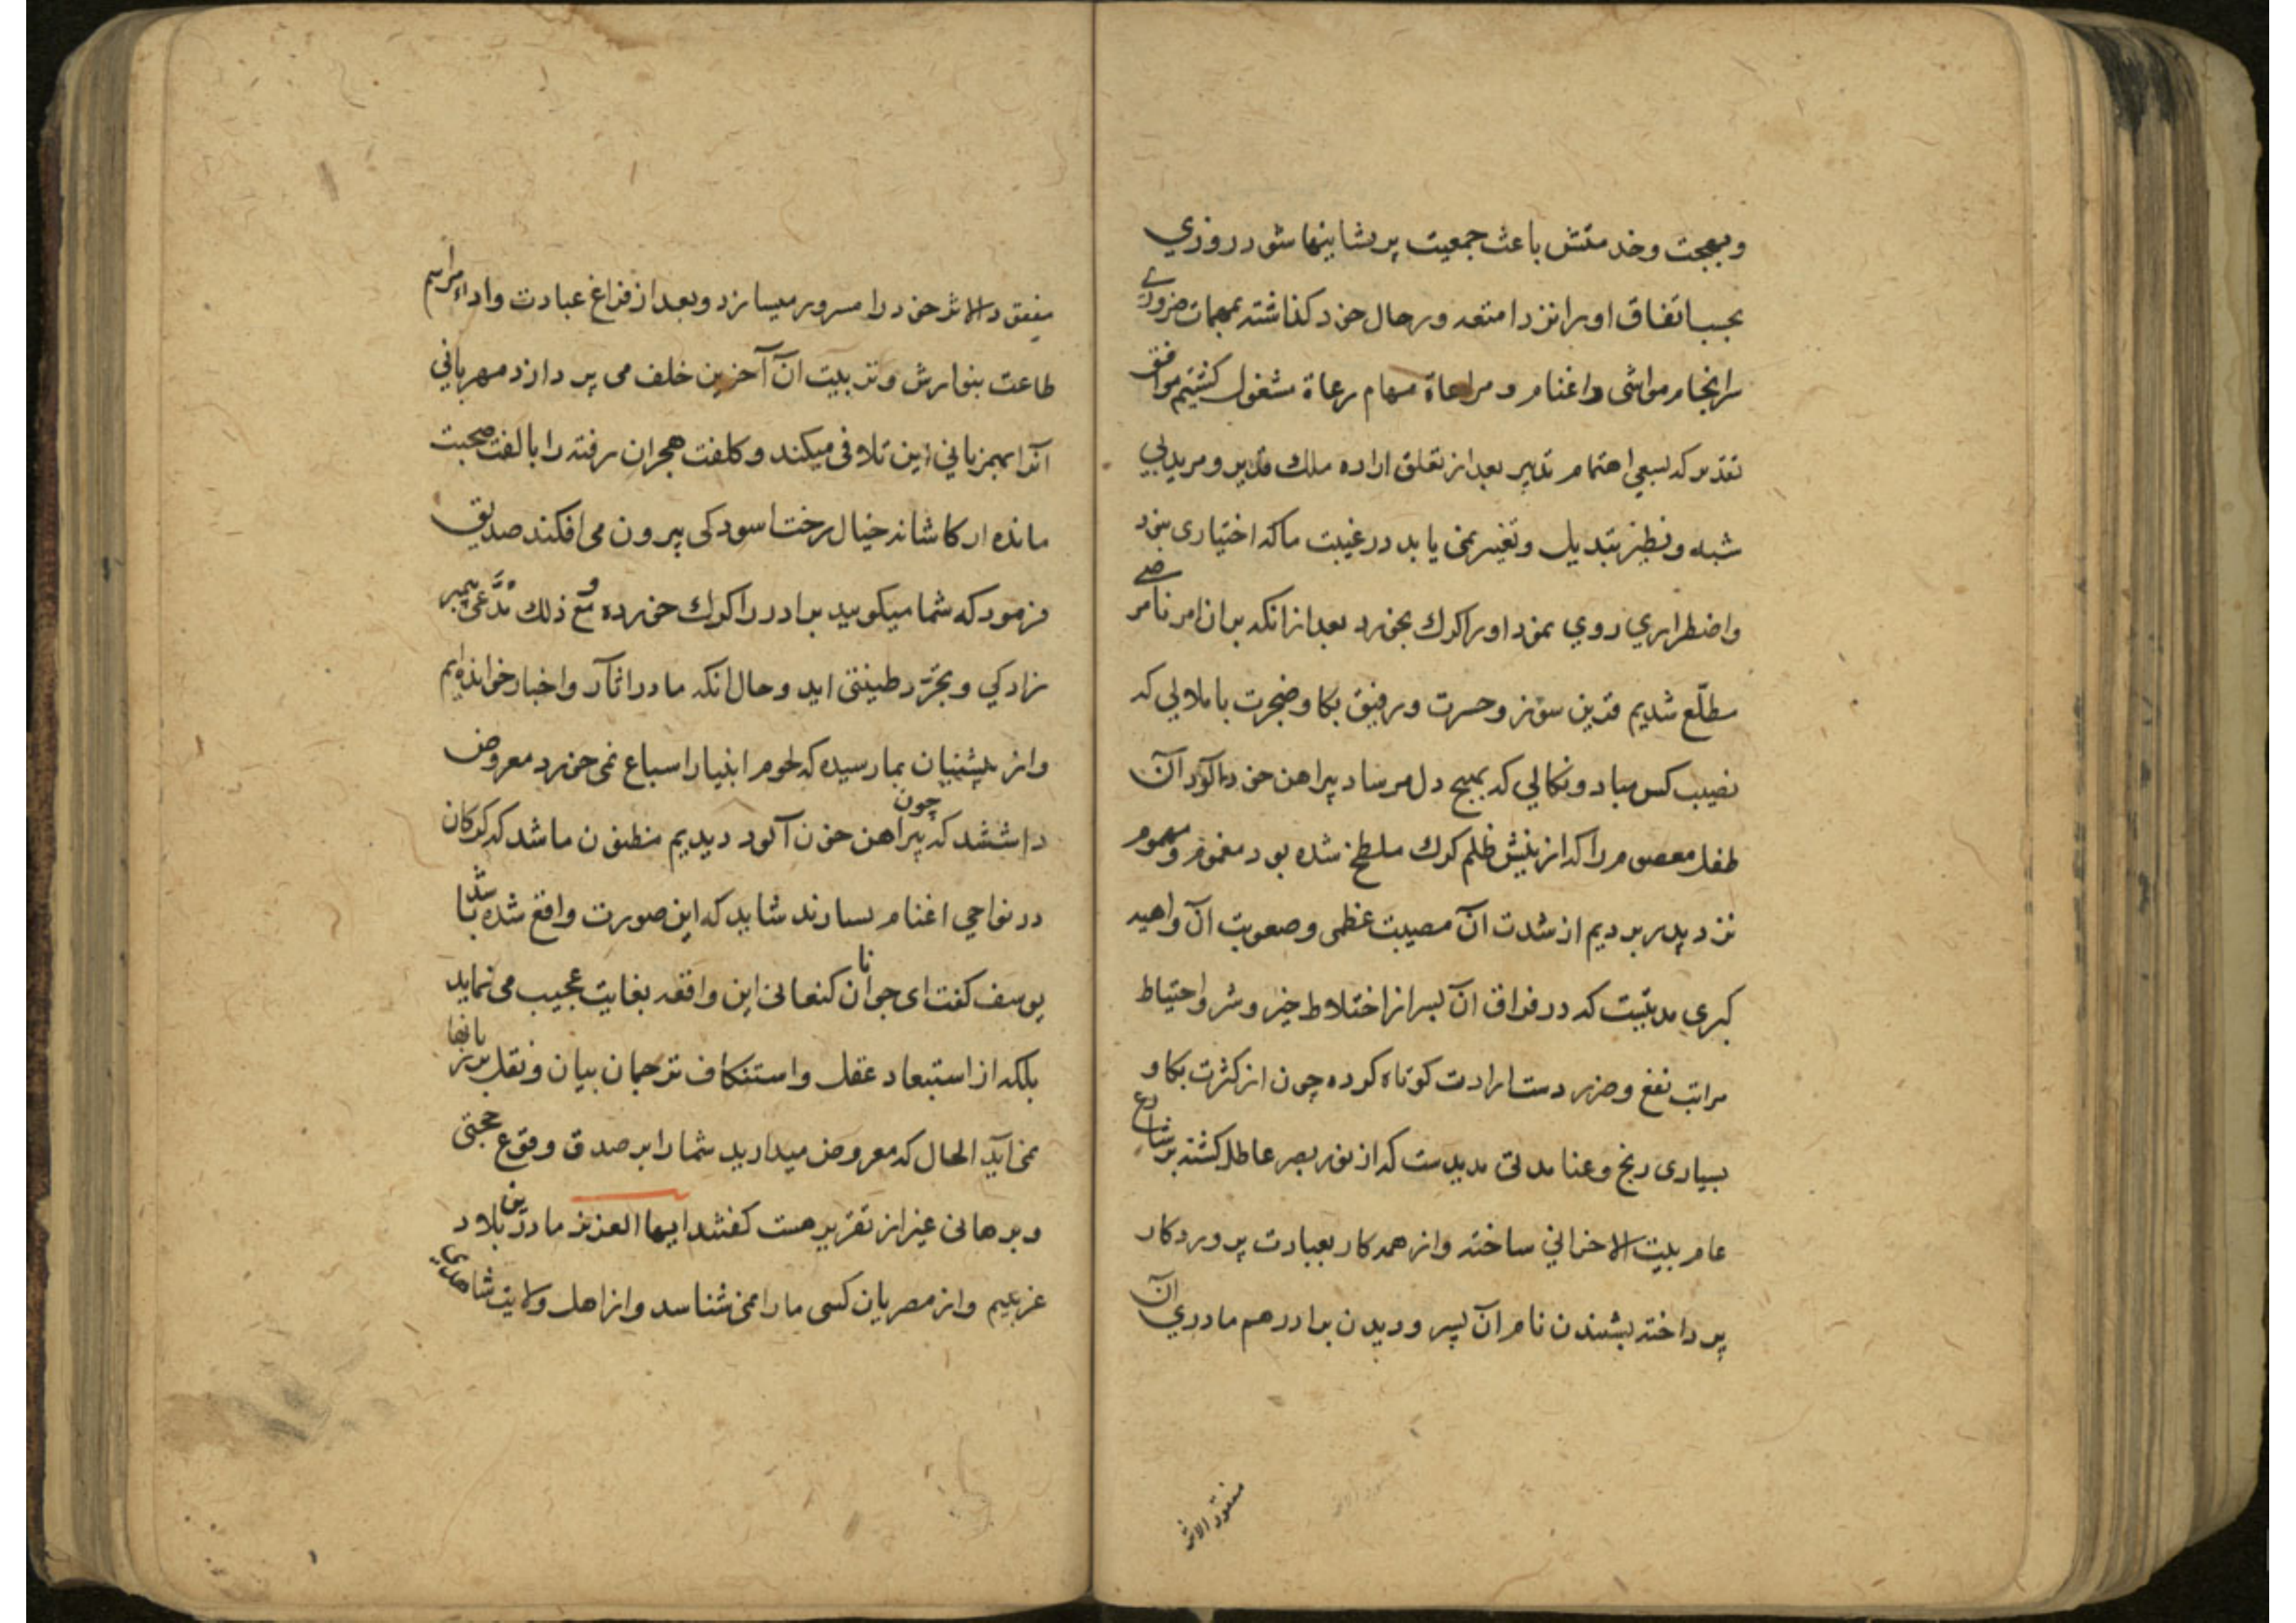 وبهجت وخدمتش باعث جمعیت پریشانیها شود روزی
بحسب اتفاق اورا نزد امتعه ورحال خود کذاشته بمهمات ضروری
سرانجام مواشی واغنام و مراعاة مهام رعاة مشغول کشتیم موافق
تقدیر که بسعی اهتمام تدبیر بعد از تعلق اراده ملك قدیر ومرید بی
شبه ونظیر تبدیل وتغییر نمی یابد در غیبت ما که اختیاری نبود
واضطراری روی نمود اورا کرك بخورد بعد ازانکه بران امر نامرضی
مطلّع شدیم قرین سوز وحسرت ورفیق بکا وضجرت با ملالی که
نصیب کس مباد ونکالی که بهیچ دل مرساد پیراهن خون آلود آن
طفل معصوم را که از نیش ظلم کرك ملطخ شده بود مغموم ومهموم
نزد پدر بردیم از شدت آن مصیبت عظمی وصعوبت آن واهیه
کبری مدتیست که در فراق آن پسر از اختلاط خیر وشر واحتیاط
مراتب نفع وضرر دست ارادت کوتاه کرده چون از کثرت بکا و
بسیاری رنج وعنا مدتی مدیدست که از نور بصر عاطل کشته بر شارع
عام بیت الاحزانی ساخته واز همه کار بعبادت پروردکار
پرداخته بشنیدن نام آن پسر ودیدن برادر هم مادری آن
مفقود الاثر
مفقود الاثر خود را مسرور میسازد وبعد از فراغ عبادت واداء مراسم
طاعت بنوازش وتربیت آن آخرین خلف می پردازد مهربانی
آنرا بهمزبانی این تلافی میکند وکلفت هجران رفته را بالفت صحبت
مانده از کاشانه خیال رخت اسودکی بیرون می افکند صدیق
فرمود که شما میکویید برادر را کرك خورده ومع ذلك مدّعی پیمبر
زادکی وبجرّد طینتی اید وحال انکه ما در اثار واخبار خوانده ایم
واز پیشینیان بما رسیده که لحوم انبیا را سباع نمی خورد معروض
داشتند که چون پیراهن خون آلود دیدیم مظنون ما شد که کرکان
در نواحی اغنام بسیارند شاید که این صورت واقع شده باشد
یوسف کفت ای جوانان کنعانی این واقعه بغایت عجیب می نماید
بلکه از استبعاد عقل واستنکاف ترجمان بیان ونقل بر زبانها
نمی آید الحال که معروض میدارید شما را بر صدق وقوع حجتی
وبرهانی غیر از تقریر هست کفتند ایها العزیز ما درین بلاد
غریبیم واز مصریان کسی ما را نمی شناسد واز اهل ولایت شاهدی